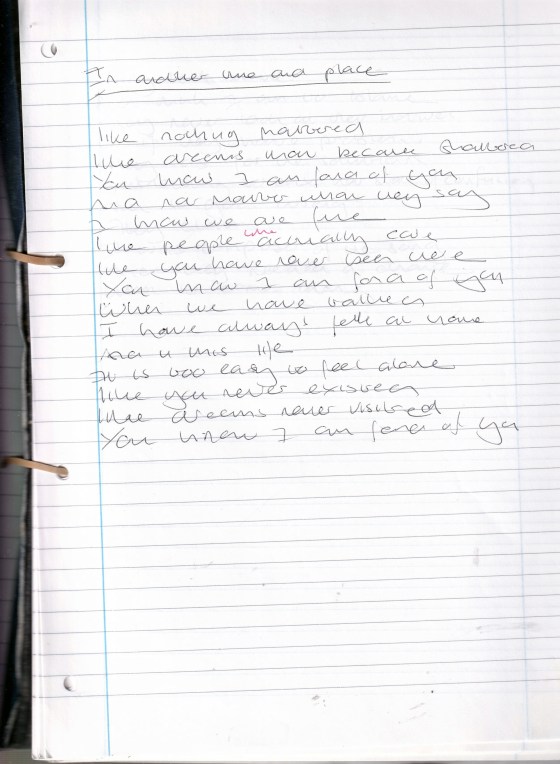 In another time and place
like nothing mattered
like dreams that became shattered
You know I am fond of you
And no matter what they say
I know we are fine
like people like actually care
like you have never been here
You know I am fond of you
When we have talked
I have always felt at home
And in this life
It is too easy to feel alone
like you never existed
like dreams never visited
You know I am fond of you